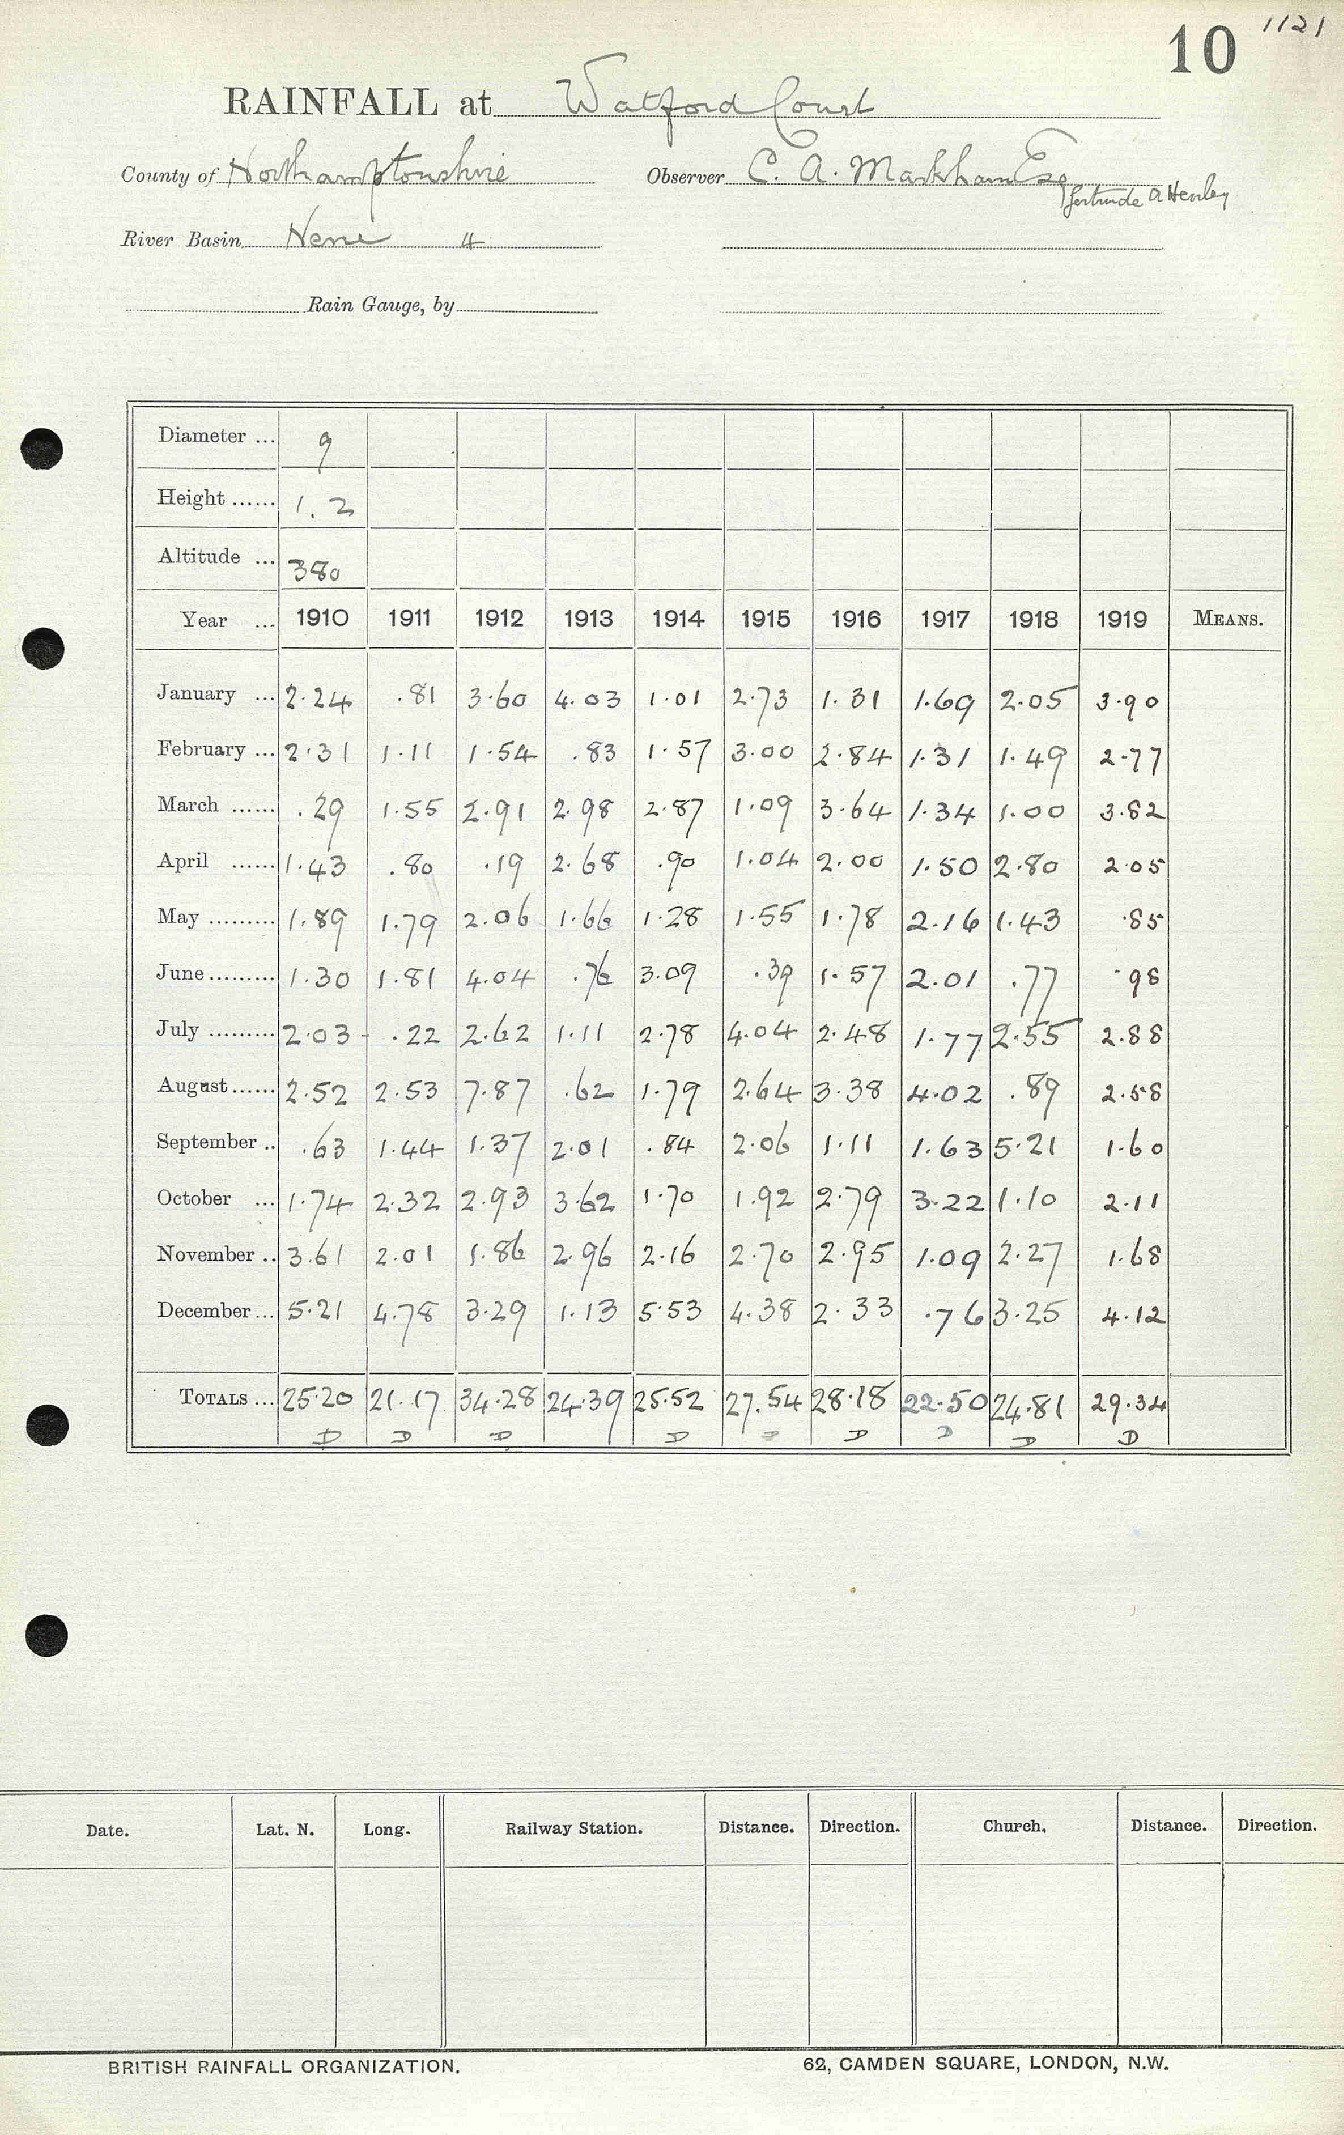 10 1121
RAINFALL at Watford Court
County of Northamptonshire Observer C. A. Markham Esq
Gertrude A Henley
River Basin Nene 4
Rain Gauge, by
Diameter ... 9
Height ...... 1.2
Altitude ... 380
Year ... 1910 1911 1912 1913 1914 1915 1916 1917 1918 1919 MEANS.
January ... 2.24 .81 3.60 4.03 1.01 2.73 1.31 1.69 2.05 3.90
February ... 2.31 1.11 1.54 .83 1.57 3.00 2.84 1.31 1.49 2.77
March ...... .29 1.55 2.91 2.98 2.87 1.09 3.64 1.34 1.00 3.82
April ...... 1.43 .80 .19 2.68 .90 1.04 2.00 1.50 2.80 2.05
May ......... 1.89 1.79 2.06 1.66 1.28 1.55 1.78 2.16 1.43 .85
June ......... 1.30 1.81 4.04 .76 3.09 .39 1.57 2.01 .77 .98
July ......... 2.03 .22 2.62 1.11 2.78 4.04 2.48 1.77 2.55 2.88
August ...... 2.52 2.53 7.87 .62 1.79 2.64 3.38 4.02 .89 2.58
September .. .63 1.44 1.37 2.01 .84 2.06 1.11 1.63 5.21 1.60
October ... 1.74 2.32 2.93 3.62 1.70 1.92 2.79 3.22 1.10 2.11
November .. 3.61 2.01 1.86 2.96 2.16 2.70 2.95 1.09 2.27 1.68
December ... 5.21 4.78 3.29 1.13 5.53 4.38 2.33 .76 3.25 4.12
TOTALS ... 25.20 21.17 34.28 24.39 25.52 27.54 28.18 22.50 24.81 29.34
D D D D D D D D D
Date. Lat. N. Long. Railway Station. Distance. Direction. Church. Distance. Direction.
BRITISH RAINFALL ORGANIZATION. 62, CAMDEN SQUARE, LONDON, N.W.